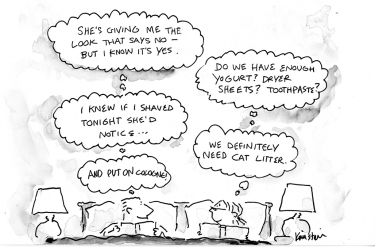 SHE'S GIVING ME THE
LOOK THAT SAYS NO –
BUT I KNOW IT'S YES.
I KNEW IF I SHAVED
TONIGHT SHE'D
NOTICE ...
AND PUT ON COLOGNE!
DO WE HAVE ENOUGH
YOGURT? DRYER
SHEETS? TOOTHPASTE?
WE DEFINITELY
NEED CAT LITTER.